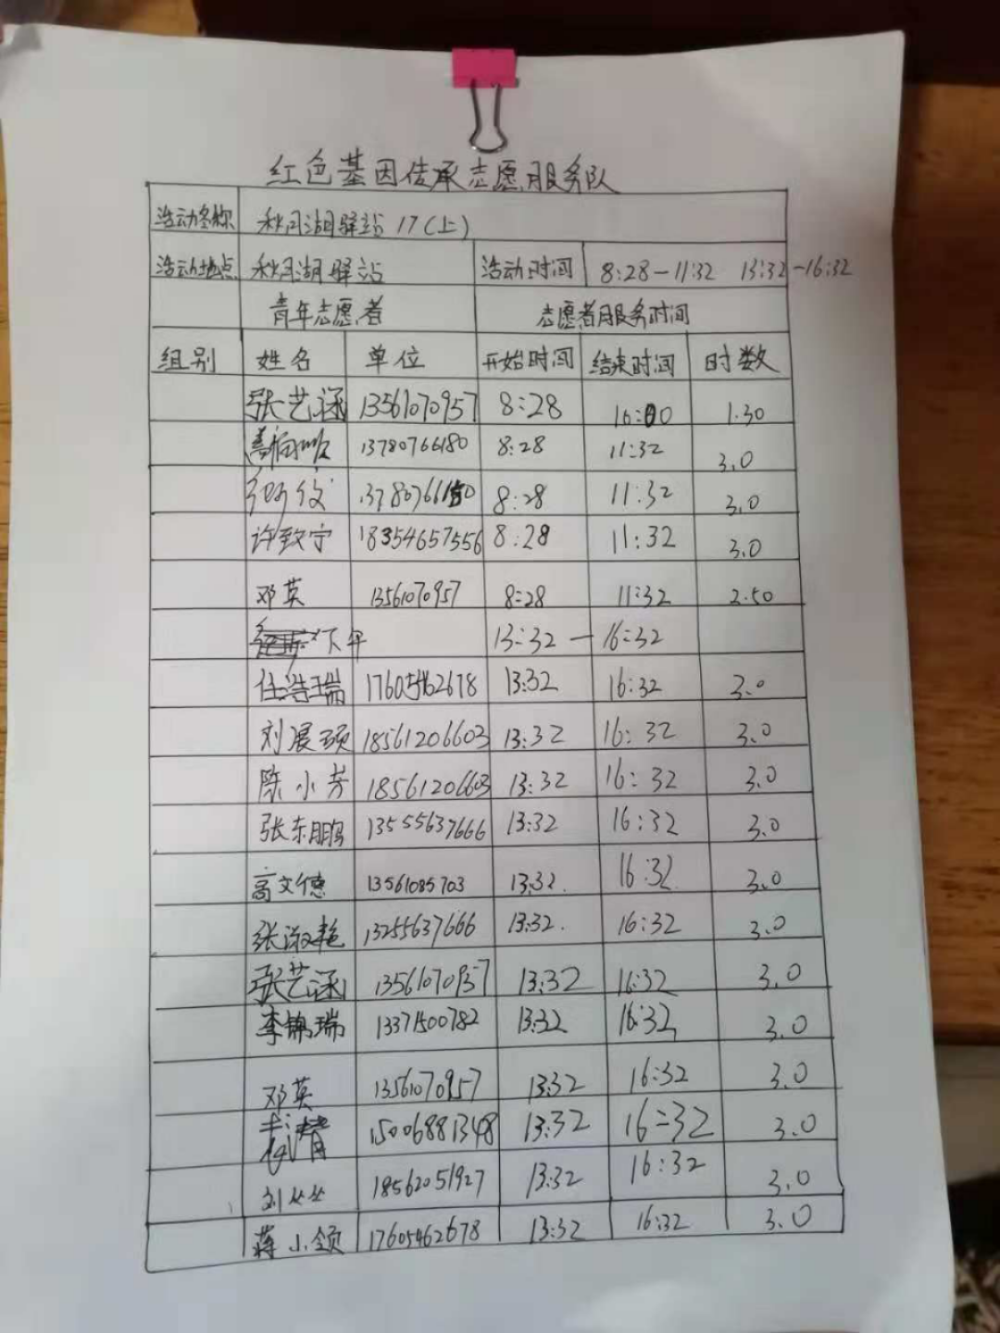 红色基因传承志愿服务队
活动名称 秋月湖驿站 17(上)
活动地点 秋月湖驿站 活动时间 8:28-11:32 13:32-16:32
青年志愿者 志愿者服务时间
组别 姓名 单位 开始时间 结束时间 时数
张艺涵 13561070957 8:28 10:00 1.30
13780766180 8:28 11:32 3.0
8:28 11:32 3.0
许致宁 18354657556 8:28 11:32 3.0
邓英 13561070957 8:28 11:32 2.50
下午 13:32-16:32
任浩瑞 17605462678 13:32 16:32 3.0
刘展硕 18561206603 13:32 16:32 3.0
陈小芳 18561206603 13:32 16:32 3.0
张东鹏 13555637666 13:32 16:32 3.0
高文德 13561085703 13:32. 16:32 3.0
张淑艳 13255637666 13:32. 16:32 3.0
张艺涵 13561070957 13:32 16:32 3.0
李锦瑞 13371500782 13:32 16:32 3.0
邓英 13561070957 13:32 16:32 3.0
15006881348 13:32 16:32 3.0
刘丛丛 18562051927 13:32 16:32 3.0
蒋小颔 17605462678 13:32 16:32 3.0